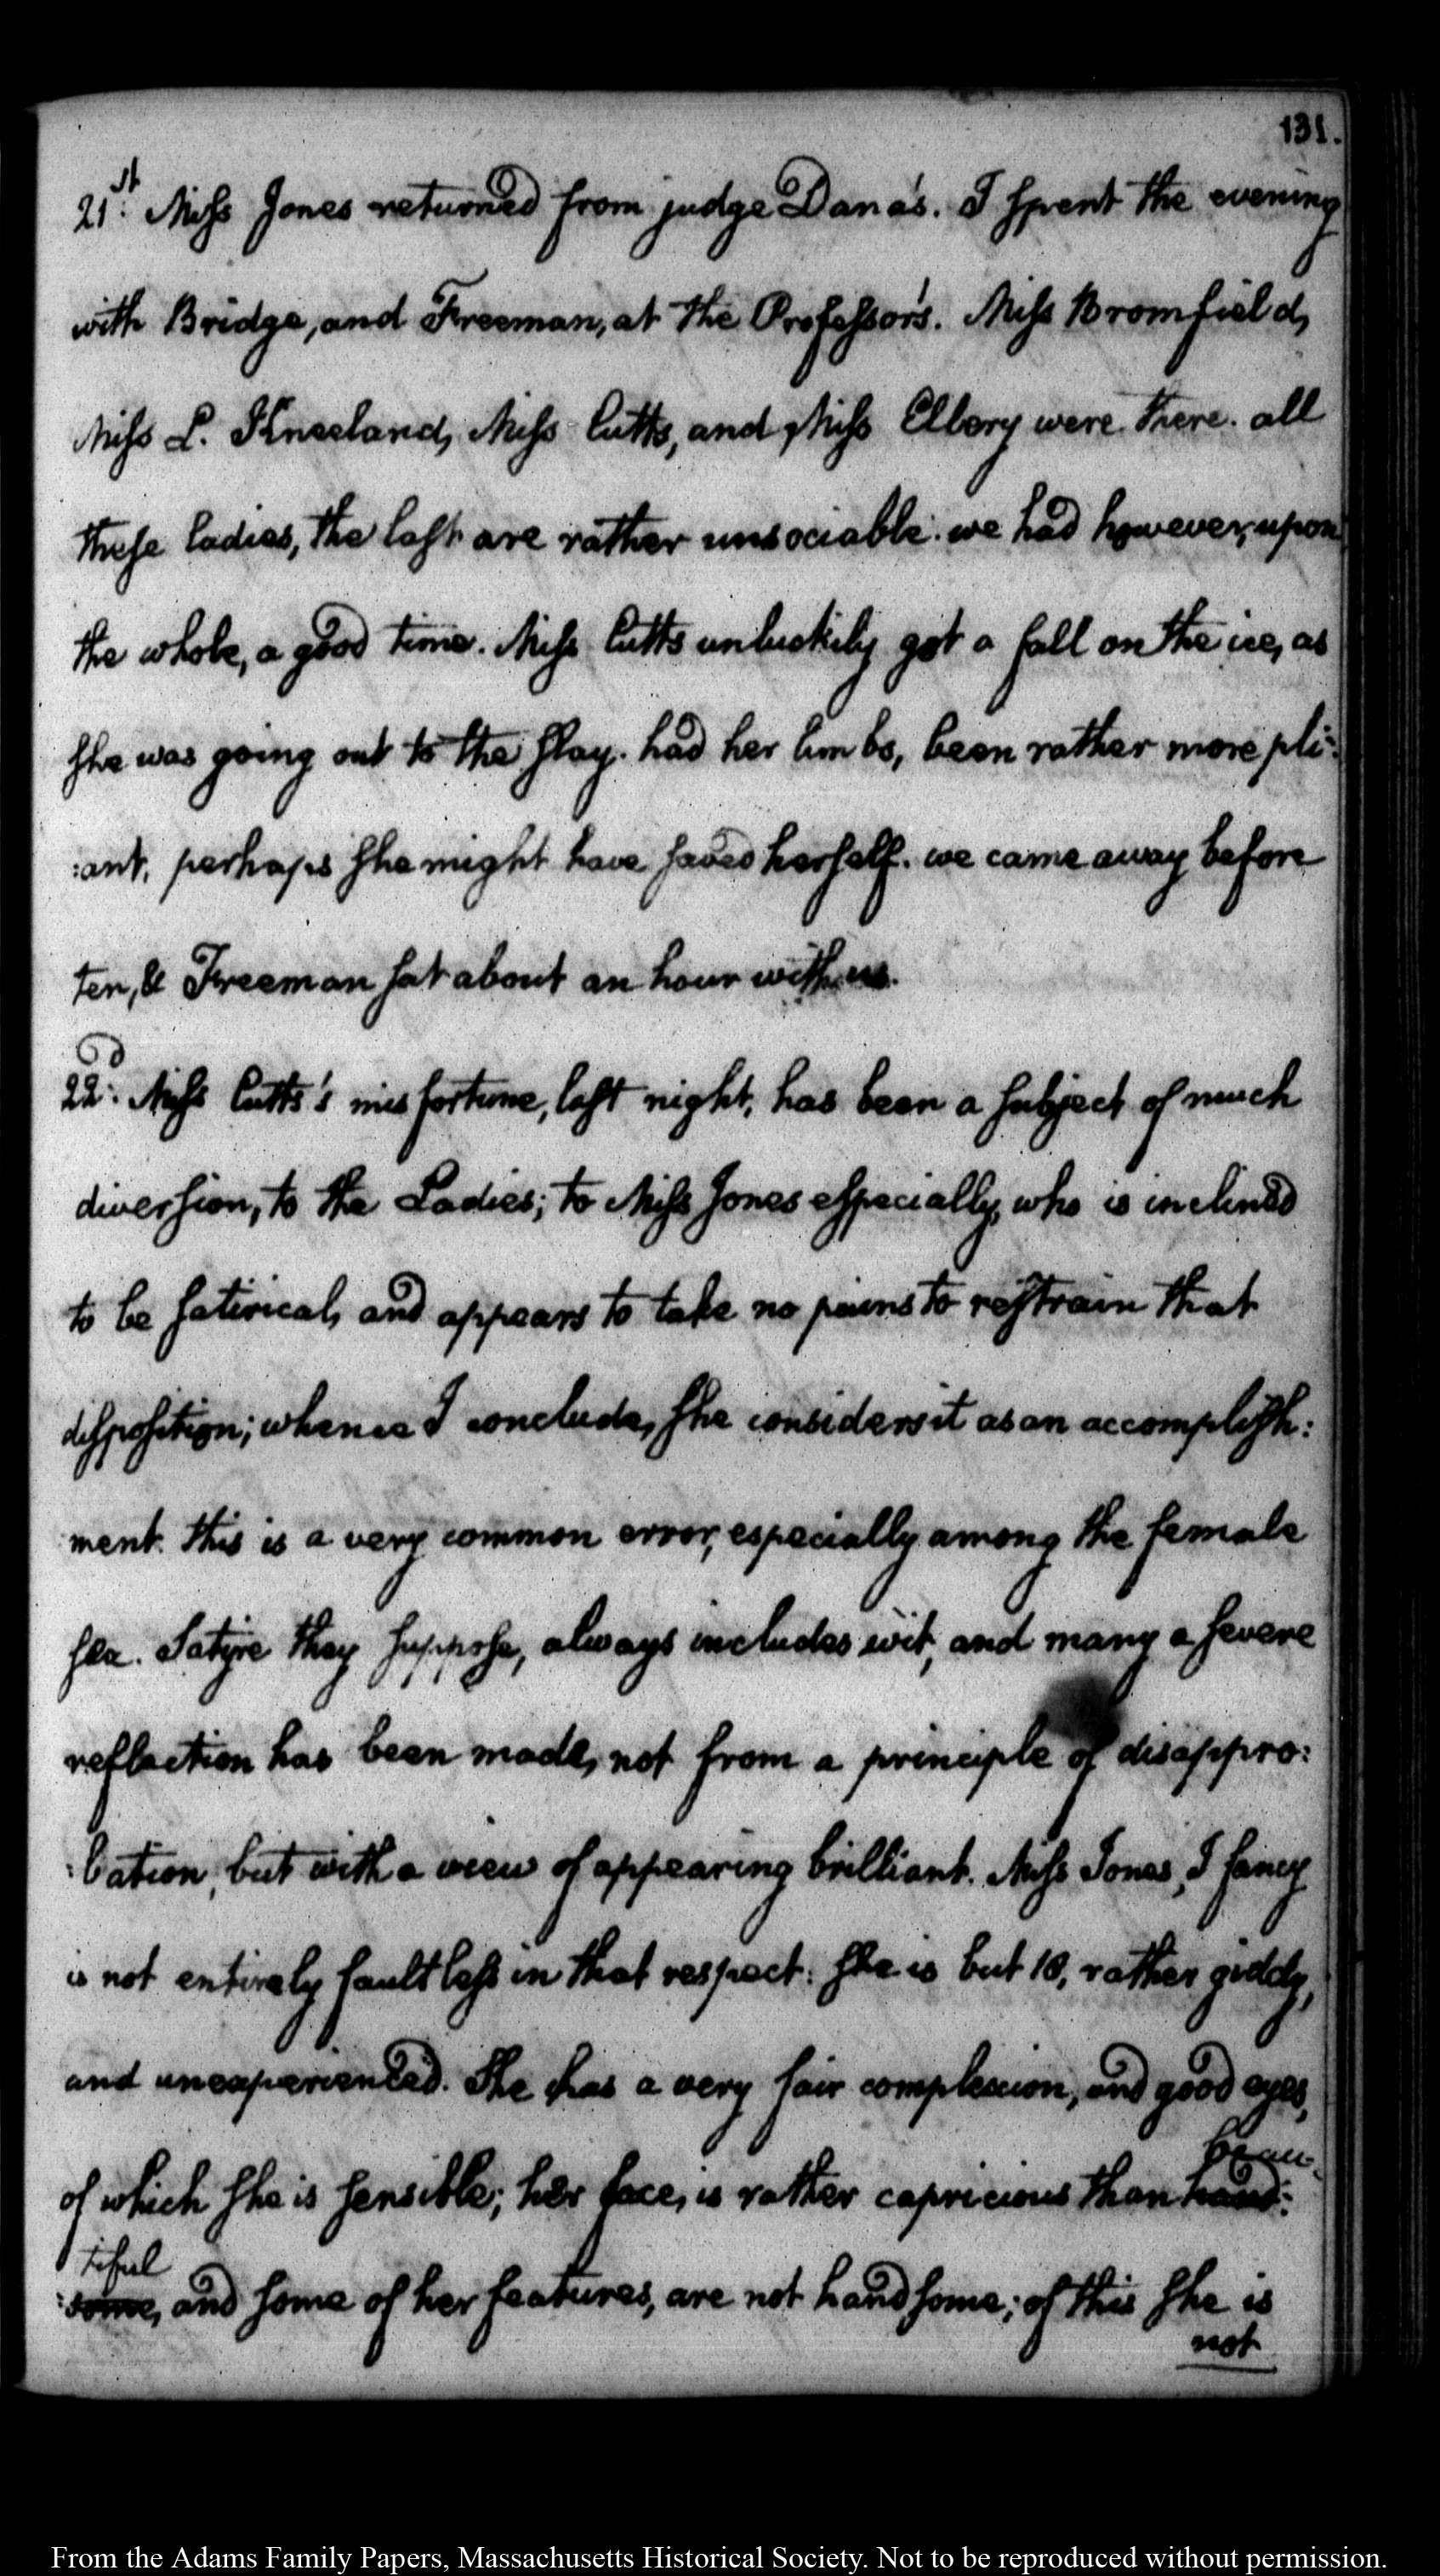 131.
21st. Miss Jones returned from judge Dana's. I spent the evening
with Bridge, and Freeman, at the Professor's. Miss Bromfield,
Miss L. Kneeland, Miss Cutts, and Miss Ellery were there. all
these ladies, the last are rather unsociable. we had however, upon
the whole, a good time. Miss Cutts unluckily got a fall on the ice, as
she was going out to the slay. had her limbs, been rather more pli:
:ant, perhaps she might have saved herself. we came away before
ten, & Freeman sat about an hour with us.
22d. Miss Cutts's misfortune, last night, has been a subject of much
diversion, to the Ladies; to Miss Jones especially, who is inclined
to be satirical, and appears to take no pains to restrain that
disposition; whence I conclude, she considers it as an accomplish:
ment. this is a very common error, especially among the female
sex. Satyre they suppose, always includes wit, and many a severe
reflection has been made, not from a principle of disappro:
:bation, but with a view of appearing brilliant. Miss Jones, I fancy
is not entirely faultless in that respect: she is but 18, rather giddy,
and unexperienced. She has a very fair complexion, and good eyes,
beau-
of which she is sensible; her face, is rather capricious than hand:
tiful
:some, and some of her features, are not handsome; of this she is
not
From the Adams Family Papers, Massachusetts Historical Society. Not to be reproduced without permission.